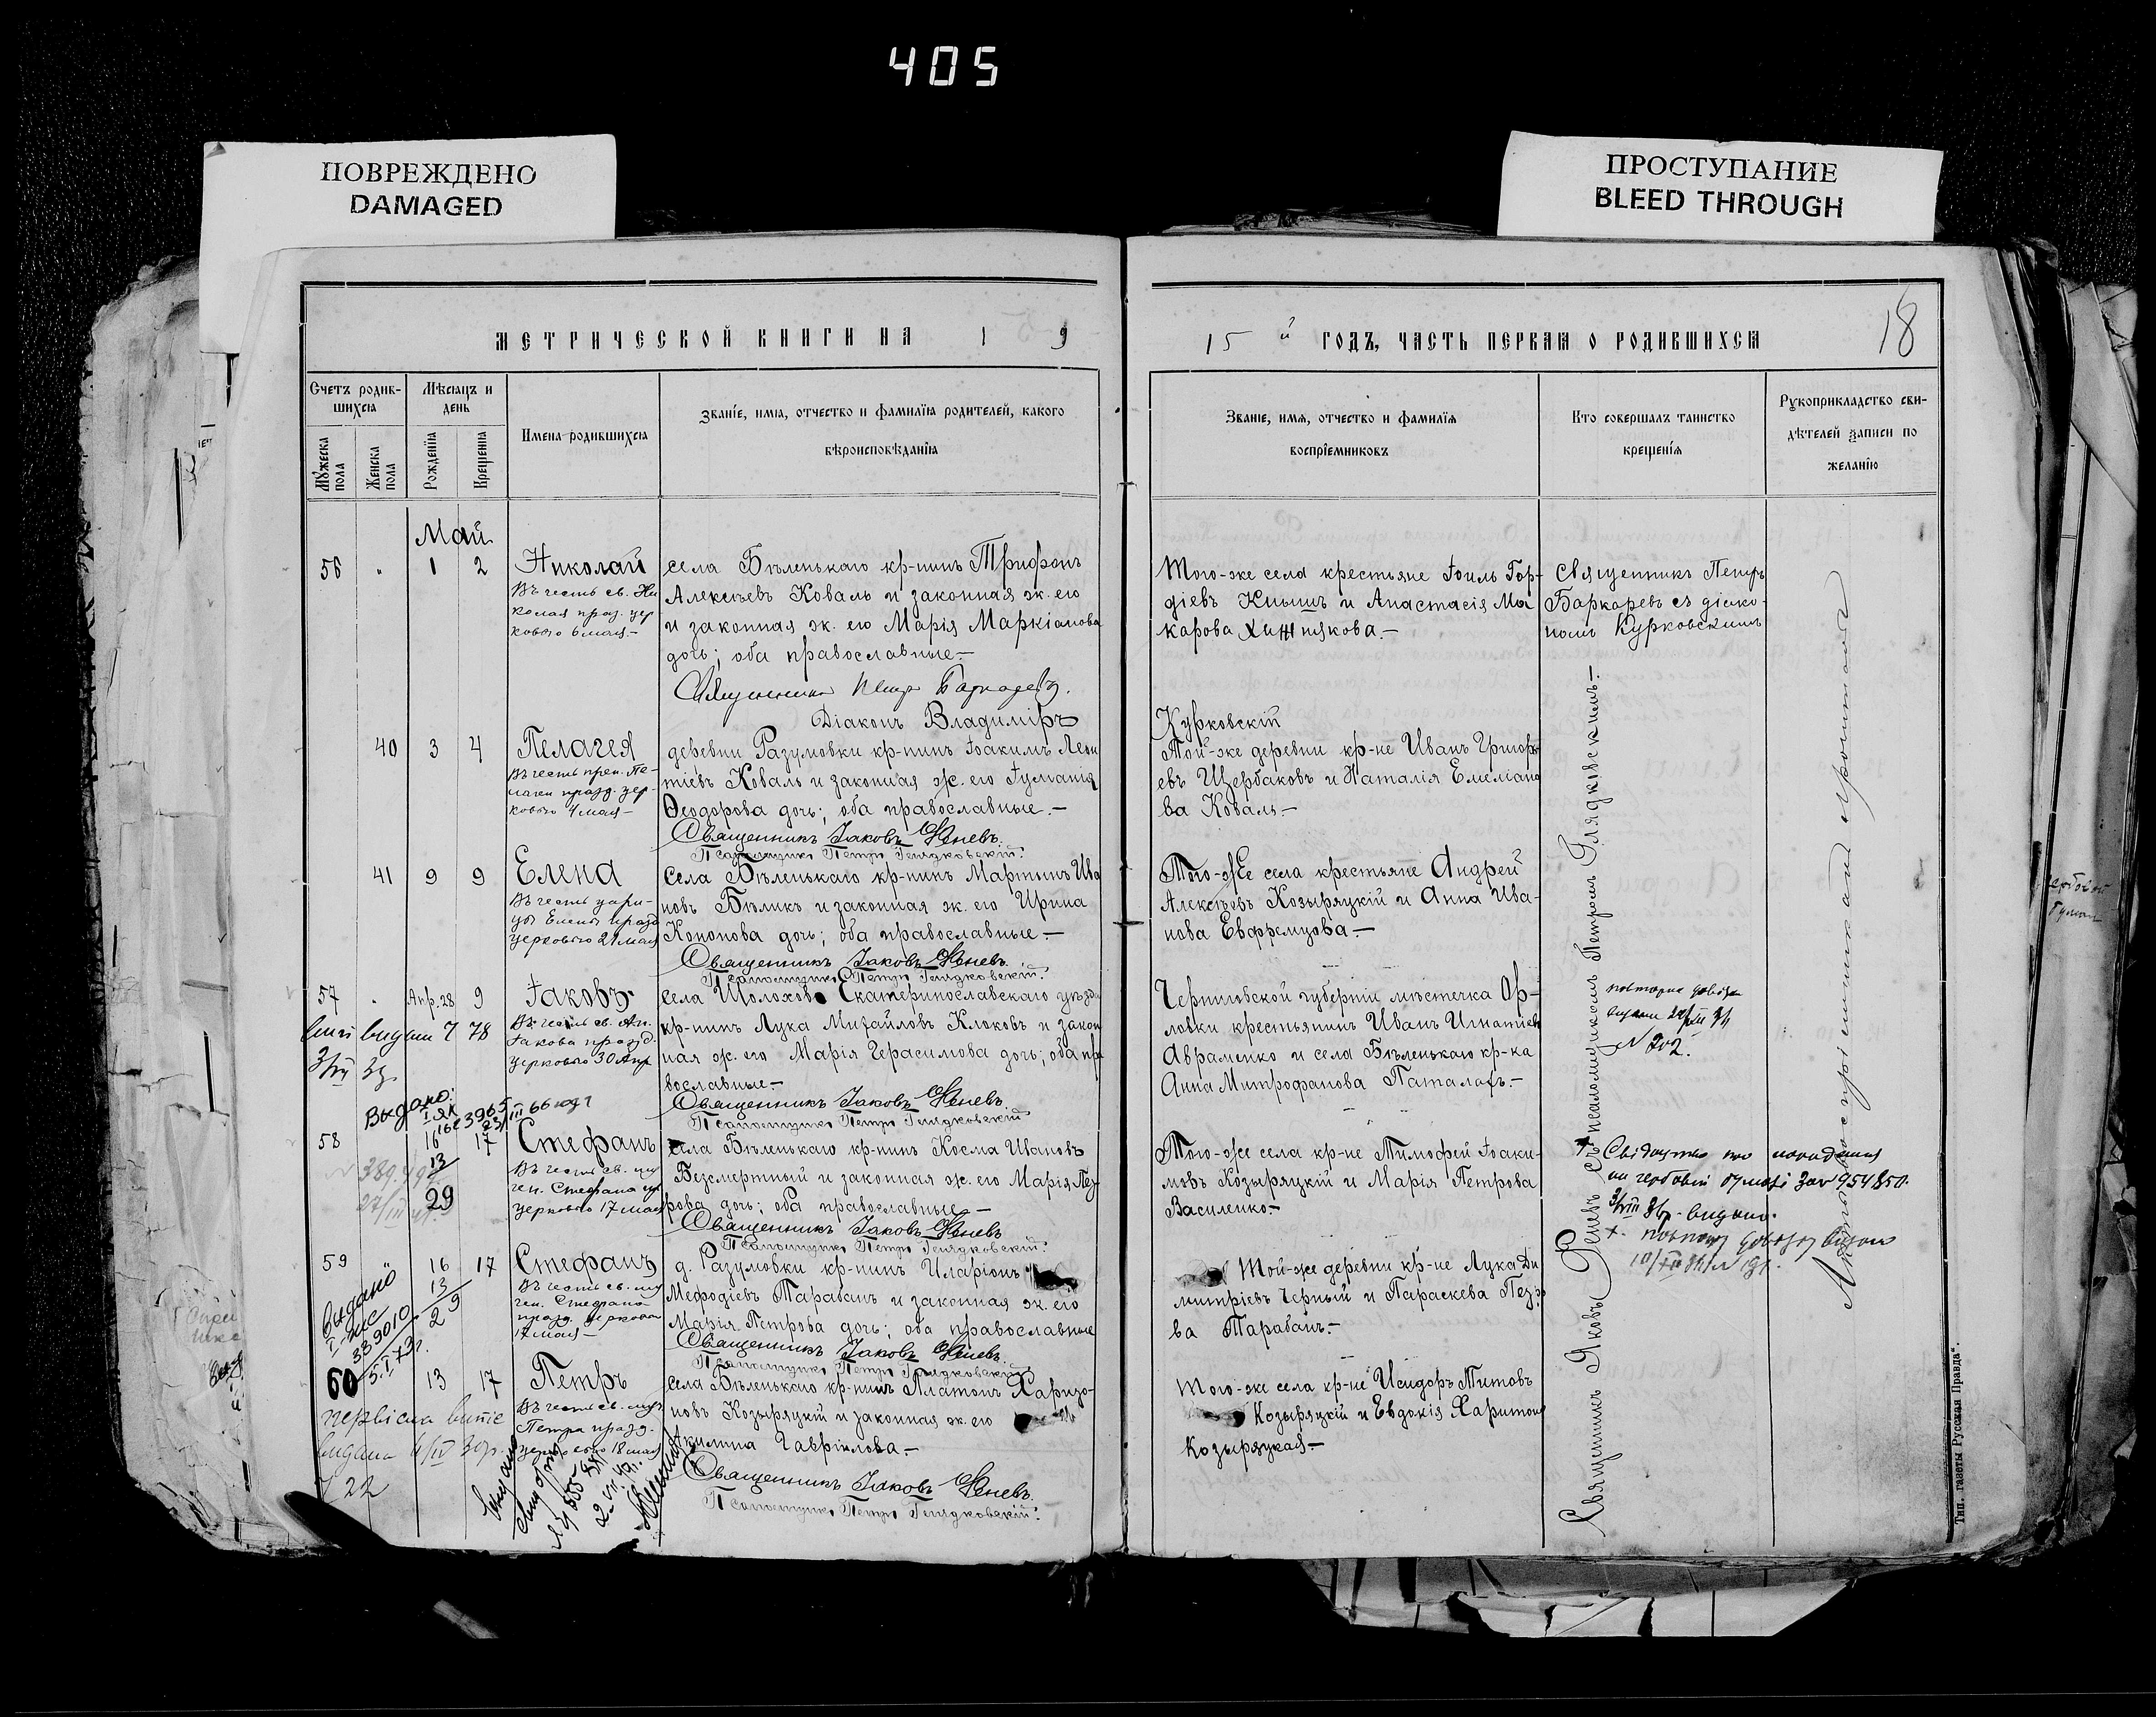 405
ПОВРЕЖДЕНО
DAMAGED
ПРОСТУПАНИЕ
BLEED THROUGH
МЕТРИЧЕСКОЙ КНИГИ НА 1 9
15 й ГОДЪ, ЧАСТЬ ПЕРВАЯ О РОДИВШИХСЯ
18
Счетъ родив-
шихся
Мужеска
пола
Женска
пола
Мѣсяцъ и
день
Рожденїя
Крещенїя
Имена родившихся
Званїе, имя, отчество и фамилїя родителей, какого
вѣроисповѣданїя
Званїе, имя, отчество и фамилїя
воспрїемниковъ
Кто совершалъ таинство
крещенїя
Рукоприкладство сви-
дѣтелей записи по
желанїю
Май
56 " 1 2 Николай
Въ честь св. Ни
колая праз. цер
ковью 6 мая —
села Бѣленькаго кр-нинъ Трифонъ
Алексѣевъ Коваль и законная ж. его
и законная ж. его Марія Маркіанова
дочь; оба православные —
Священникъ Петръ Баркаревъ.
Діаконъ Владиміръ
Курковскій
Того-же села крестьяне Іоиль Гор-
діевъ Кнышъ и Анастасія Ма
карова Хижнякова. —
Священникъ Петръ
Баркаревъ съ діако-
номъ Курковскимъ
40 3 4 Пелагея
Въ честь преп. Пе-
лагеи празд. цер-
ковью 4 мая —
деревни Разумовки кр-нинъ Іоакимъ Леон
тіевъ Коваль и законная ж. его Іулианія
Ѳеодорова дочь; оба православные. —
Священникъ Іаковъ Феневъ.
Псаломщикъ Петръ Глядковскій.
Той-же деревни кр-не Иванъ Григорь
евъ Щербаковъ и Наталія Емеліано
ва Коваль —
41 9 9 Елена
Въ честь цари-
цы Елены празд
церковью 21 мая
Села Бѣленькаго кр-нинъ Мартинъ Ива
новъ Бѣликъ и законная ж. его Ирина
Кононова дочь; оба православные —
Священникъ Іаковъ Феневъ.
Псаломщикъ Петръ Глядковскій.
Того-же села крестьяне Андрей
Алексѣевъ Козыряцкій и Анна Ива-
нова Евфремцова —
57 " Апр. 28 9 Іаковъ
Въ честь св. Ап.
Іакова празд.
церковью 30 Апр
села Шолохово Екатеринославскаго уѣзда
кр-нинъ Лука Михайловъ Клоковъ и закон
ная ж. его Марія Герасимова дочь; оба пра
вославные —
Священникъ Іаковъ Феневъ.
Псаломщикъ Петръ Глядковскій
Черниговской губерніи мѣстечка Ор-
ловки крестьянинъ Иванъ Игнатіевъ
Авраменко и села Бѣленькаго кр-ка
Анна Митрофанова Паталахъ. —
№ 202.
Выдано:
58 16 17 Стефанъ
13
29
Въ честь св. му
чен. Стефана пр
церковью 17 мая
села Бѣленькаго кр-нинъ Косма Ивановъ
Безсмертный и законная ж. его Марія Пет
рова дочь; оба православные —
Священникъ Іаковъ Феневъ
Псаломщикъ Петръ Глядковскій.
Того-же села кр-не Тимофей Іоаки-
мовъ Козыряцкій и Марія Петрова
Василенко —
59 16 17 Стефанъ
13
29
Въ честь св. му
чен. Стефана
празд. церковью
17 мая —
д. Разумовки кр-нинъ Иларіонъ
Мефодіевъ Тарабанъ и законная ж. его
Марія Петрова дочь; оба православные
Священникъ Іаковъ Феневъ.
Псаломщикъ Петръ Глядковскій
Той-же деревни кр-не Лука Ди
митріевъ Черный и Параскева Пет
ва Тарабанъ. —
Выдано
339010
5.I.73г.
60 13 17 Петръ
Въ честь св. муч
Петра празд.
церковью 18 мая
села Бѣленькаго кр-нинъ Платонъ Харито-
новъ Козыряцкій и законная ж. его
Акилина Гавріилова. —
Священникъ Іаковъ Феневъ.
Псаломщикъ Петръ Глядковскій.
Того-же села кр-не Исидоръ Титовъ
Козыряцкій и Евдокія Харитон
Козыряцкая —
Священникъ Яковъ Феневъ съ псаломщикомъ Петромъ Глядковскимъ. —
Тип. газеты „Русская Правда“.